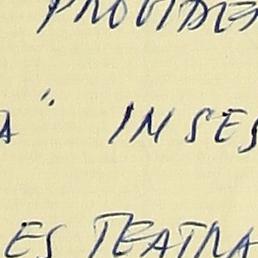 PROVIDEN
A" IN SES
ES TEATRA